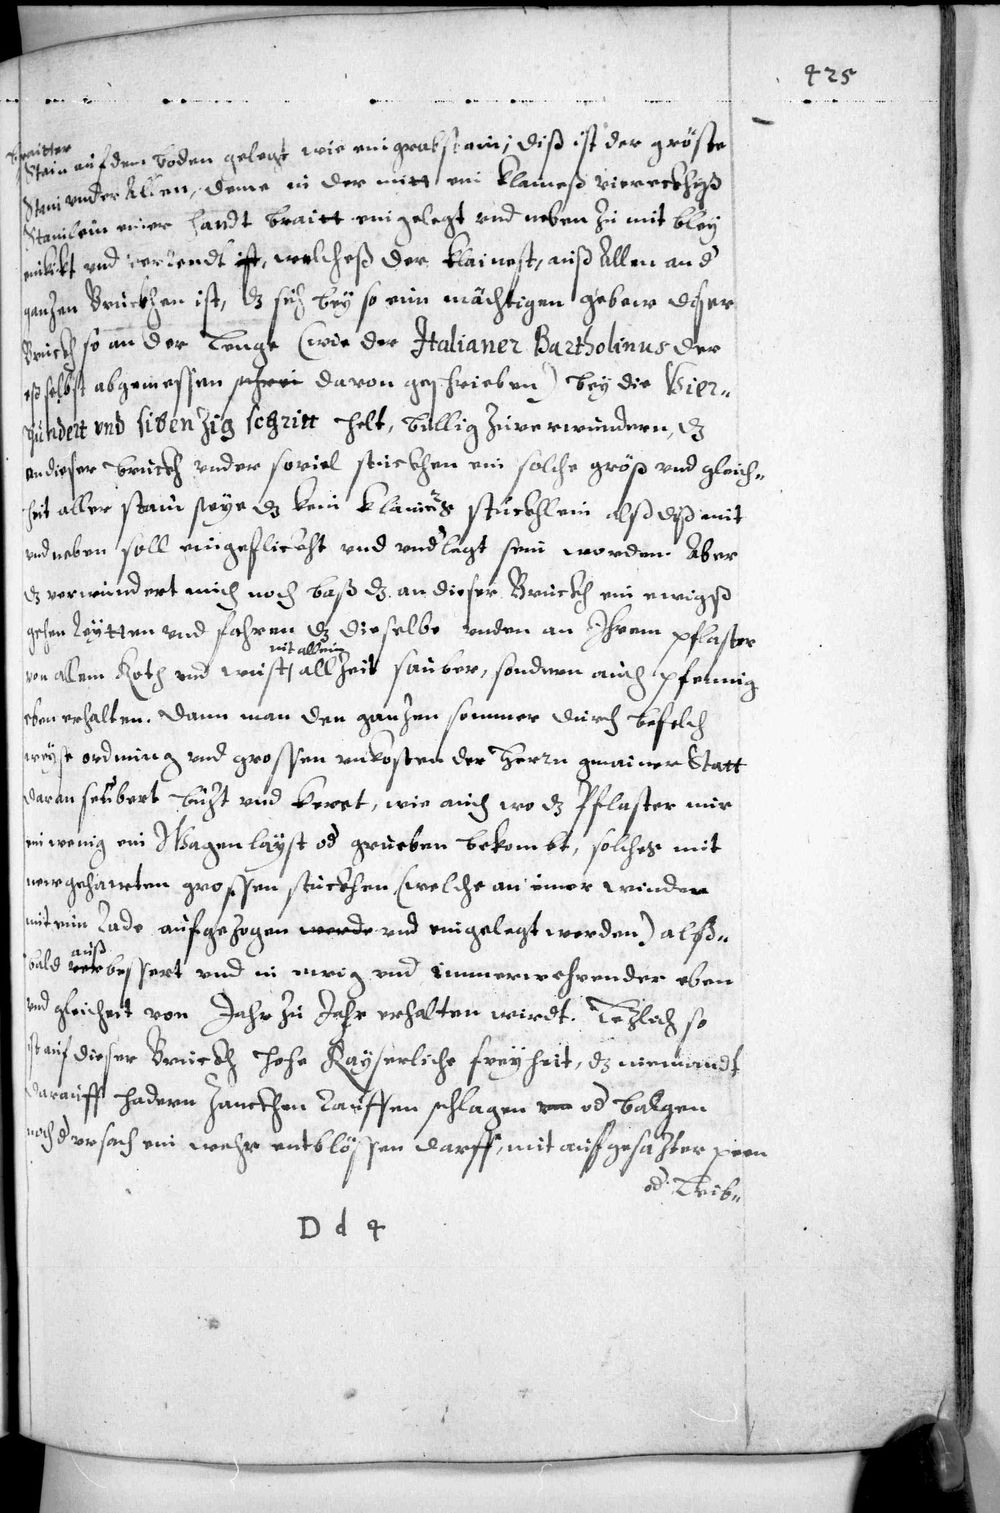 425
braitter
Stain auf dem boden gelegt wie ein grabstain, diß ist der gröste
Stain under Allen, deme in der mitt ein klaineß viereckhigß
Stainlein einer handt braitt eingelegt und neben zu mit bley
und ist, welcheß der klainest, auß Allen and
ganzen Bruckhen ist, dz sich bey so eim mächtigen gebew diser
Bruckh so an der Lenge (wie der Italianer Bartholinus der
eß selbst abgemessen davon geschrieben) bey die Vier-
hundert und sibenzig schritt helt, billig zuverwundern, dz
an dieser bruckh under soviel stuckhen ein solche größ und gleich-
heit aller stain seye dz kein klainers stuckhlein alß diß mit
und neben soll eingeflickht und undlegt sein worden. Aber
dz verwundert mich noch baß dz an dieser Bruckh ein ewigß
gehen Reytten und fahren dz dieselbe unden an Ihrem pflaster
nit allein
von allem Koth und wust allzeit sauber, sondern auch pfennig
eben erhalten. Dann man den ganzen sommer durch befelch
weyse ordnung und grossen unkosten der Herrn gmainer Statt
daran seubert buzt und keret, wie auch wo dz Pflaster nur
ein wenig ein Wagenlayst od grueben bekombt, solches mit
newgehawten grossen stuckhen (welche an einer winden
mit eim Lade aufgezogen werde und eingelegt werden) alß-
auß
bald verbessert und in ewig und immerwehrender eben
und gleicheit von Jahr zu Jahr erhalten wirdt. Letzlich so
ist auf dieser Bruckh hohe Kayserliche freyheit, dz niemandt
darauff hadern zanckhen rauffen schlagen od balgen
noch d ursach ein wehr entblössen darff, mit aufgesazter peen
od Leib-
D d 4